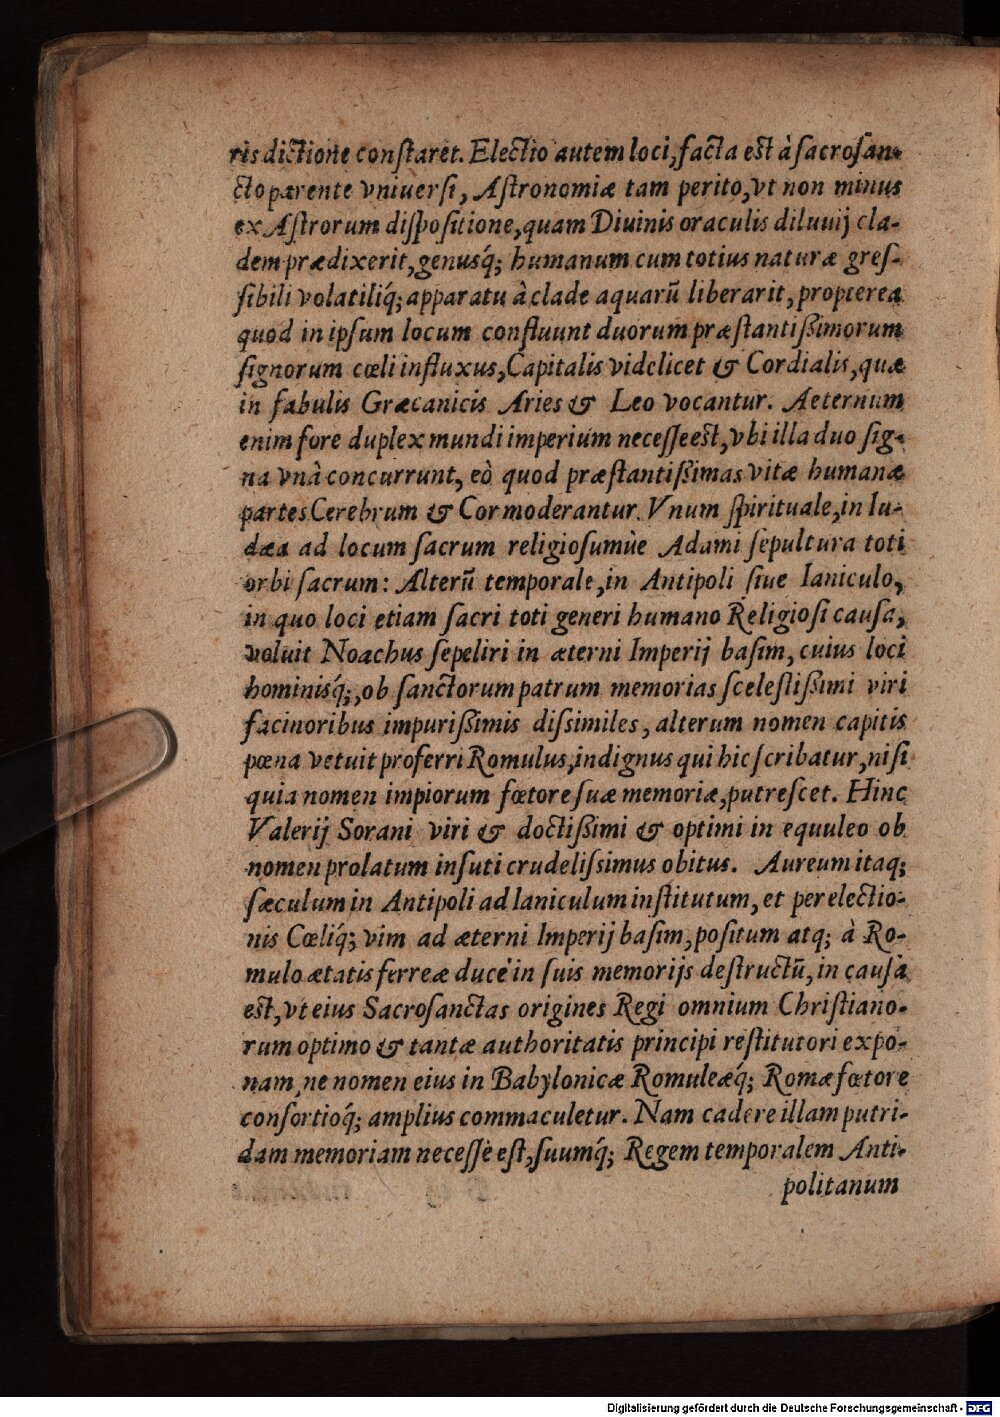 ris dictione conſtaret. Electio autem loci, facta est à ſacroſan-
cto parente vniuerſi, Aſtronomiæ tam perito, vt non minus
ex Aſtrorum diſpoſitione, quam Diuinis oraculis diluuij cla-
dem prædixerit, genusq́; humanum cum totius naturæ greſ-
ſibili volatiliq́; apparatu à clade aquarū liberarit, propterea
quod in ipſum locum confluunt duorum præſtantißimorum
ſignorum cœli influxus, Capitalis videlicet & Cordialis, quæ
in fabulis Græcanicis Aries & Leo vocantur. Aeternum
enim fore duplex mundi imperium neceſſe est, vbi illa duo ſig-
na vnà concurrunt, eò quod præſtantißimas vitæ humanæ
partes Cerebrum & Cor moderantur. Vnum ſpirituale, in Iu-
dæa ad locum ſacrum religioſumùe Adami ſepultura toti
orbi ſacrum: Alterū temporale, in Antipoli ſiue Ianiculo,
in quo loci etiam ſacri toti generi humano Religioſi cauſa,
voluit Noachus ſepeliri in æterni Imperij baſim, cuius loci
hominisq́;, ob ſanctorum patrum memorias ſceleſtißimi viri
facinoribus impurißimis diſsimiles, alterum nomen capitis
pœna vetuit proferri Romulus, indignus qui hic ſcribatur, niſi
quia nomen impiorum fœtore ſuæ memoriæ, putreſcet. Hinc
Valerij Sorani viri & doctißimi & optimi in equuleo ob
nomen prolatum inſuti crudeliſsimus obitus. Aureum itaq;
ſæculum in Antipoli ad Ianiculum inſtitutum, et per electio-
nis Cœliq́; vim ad æterni Imperij baſim, poſitum atq; à Ro-
mulo ætatis ferreæ duce in ſuis memorijs deſtructū, in cauſa
est, vt eius Sacroſanctas origines Regi omnium Chriſtiano-
rum optimo & tantæ authoritatis principi reſtitutori expo-
nam, ne nomen eius in Babylonicæ Romuleæq́; Romæ fœtore
conſortioq́; amplius commaculetur. Nam cadere illam putri-
dam memoriam neceſſe eſt, ſuumq́; Regem temporalem Anti-
politanum
Digitalisierung gefördert durch die Deutsche Forschungsgemeinschaft - DFG